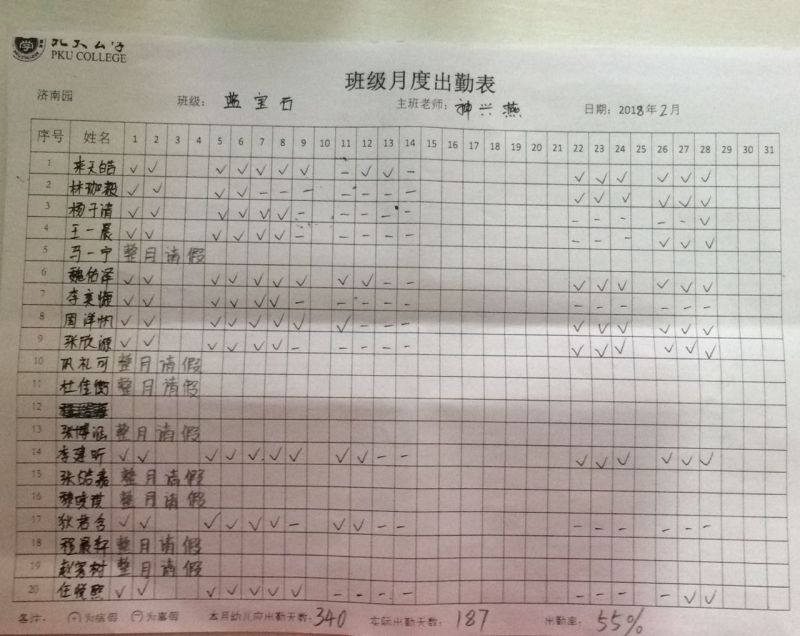 北大公学
PKU COLLEGE
班级月度出勤表
济南园 班级: 蓝宝石 主班老师: 神兴燕 日期: 2018年2月
序号 姓名 1 2 3 4 5 6 7 8 9 10 11 12 13 14 15 16 17 18 19 20 21 22 23 24 25 26 27 28 29 30 31
1 ✓ ✓ ✓ ✓ ✓ ✓ ✓ - ✓ ✓ - ✓ ✓ ✓ ✓ ✓ ✓
2 林珈毅 ✓ ✓ ✓ ✓ - - - - - - - ✓ ✓ ✓ ✓ ✓ ✓
3 杨子清 ✓ ✓ ✓ ✓ ✓ ✓ - - - - - - - - - - ✓
4 王一晨 ✓ ✓ ✓ ✓ ✓ ✓ - - - - - - - - ✓ ✓ ✓
5 马一宁 整月请假
6 魏佑泽 ✓ ✓ ✓ ✓ ✓ ✓ ✓ ✓ ✓ - - ✓ ✓ ✓ ✓ ✓ ✓
7 李奕 ✓ ✓ ✓ ✓ ✓ ✓ - - - - - - - - - - -
8 周洋帆 ✓ ✓ ✓ ✓ ✓ ✓ ✓ ✓ - - - ✓ ✓ ✓ ✓ ✓ ✓
9 张欣源 ✓ ✓ ✓ ✓ ✓ ✓ - - - - - ✓ ✓ ✓ ✓ ✓ ✓
10 巩礼可 整月请假
11 杜佳衡 整月请假
12
13 张博涵 整月请假
14 李建昕 ✓ ✓ ✓ ✓ ✓ ✓ ✓ ✓ ✓ - - ✓ ✓ ✓ ✓ ✓ ✓
15 张皓嘉 整月请假
16 整月请假
17 狄君含 ✓ ✓ ✓ ✓ ✓ ✓ - ✓ ✓ - - - - - - - -
18 程晨轩 整月请假
19 赵家树 整月请假
20 任悦熙 ✓ ✓ ✓ ✓ ✓ ✓ ✓ - - - - - - - - ✓ ✓
备注: (+)为病假 (-)为事假 本月幼儿应出勤天数: 340 实际出勤天数: 187 出勤率: 55%